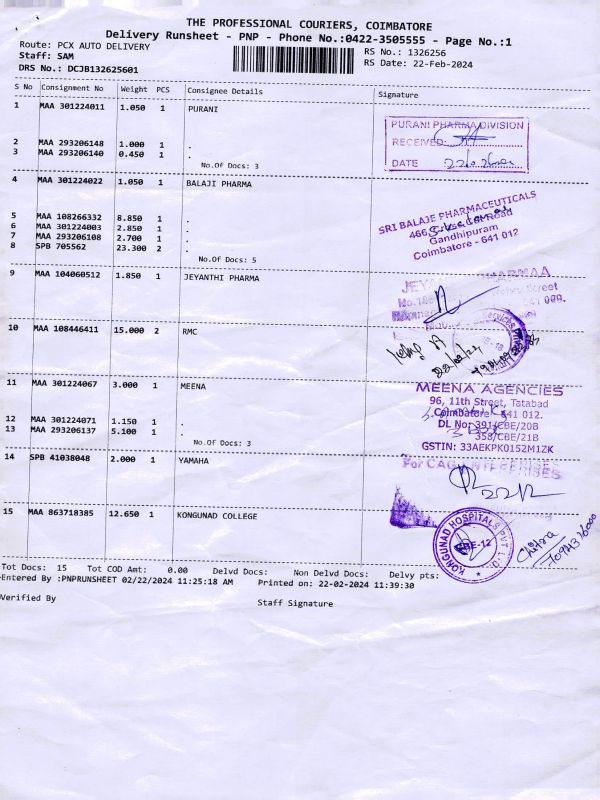 THE PROFESSIONAL COURIERS, COIMBATORE
Delivery Runsheet - PNP - Phone No.:0422-3505555 - Page No.:1
Route: PCX AUTO DELIVERY
RS No.: 1326256
Staff: SAM
RS Date: 22-Feb-2024
DRS No.: DCJB132625601
S No Consignment No Weight PCS Consignee Details Signature
1 MAA 301224011 1.050 1 PURANI
PURANI PHARMA DIVISION
RECEIVED
DATE
2 MAA 293206148 1.000 1 .
3 MAA 293206140 0.450 1 .
No.Of Docs: 3
4 MAA 301224022 1.050 1 BALAJI PHARMA
SRI BALAJE PHARMACEUTICALS
466, Road
Gandhipuram
Coimbatore - 641 012
5 MAA 108266332 8.850 1 .
6 MAA 301224003 2.850 1 .
7 MAA 293206108 2.700 1 .
8 SPB 705562 23.300 2 .
No.Of Docs: 5
9 MAA 104060512 1.850 1 JEYANTHI PHARMA
Street
10 MAA 108446411 15.000 2 RMC
11 MAA 301224067 3.000 1 MEENA
MEENA AGENCIES
96, 11th Street, Tatabad
Coimbatore - 641 012.
DL No: 391/CBE/20B
358/CBE/21B
GSTIN: 33AEKPK0152M1ZK
12 MAA 301224071 1.150 1 .
13 MAA 293206137 5.100 1 .
No.Of Docs: 3
14 SPB 41038048 2.000 1 YAMAHA
For
15 MAA 863718385 12.650 1 KONGUNAD COLLEGE
KONGUNAD HOSPITALS PVT LTD.
CBE-12
Chitra
Tot Docs: 15 Tot COD Amt: 0.00 Delvd Docs: Non Delvd Docs: Delvy pts:
Entered By :PNPRUNSHEET 02/22/2024 11:25:18 AM Printed on: 22-02-2024 11:39:30
Verified By
Staff Signature